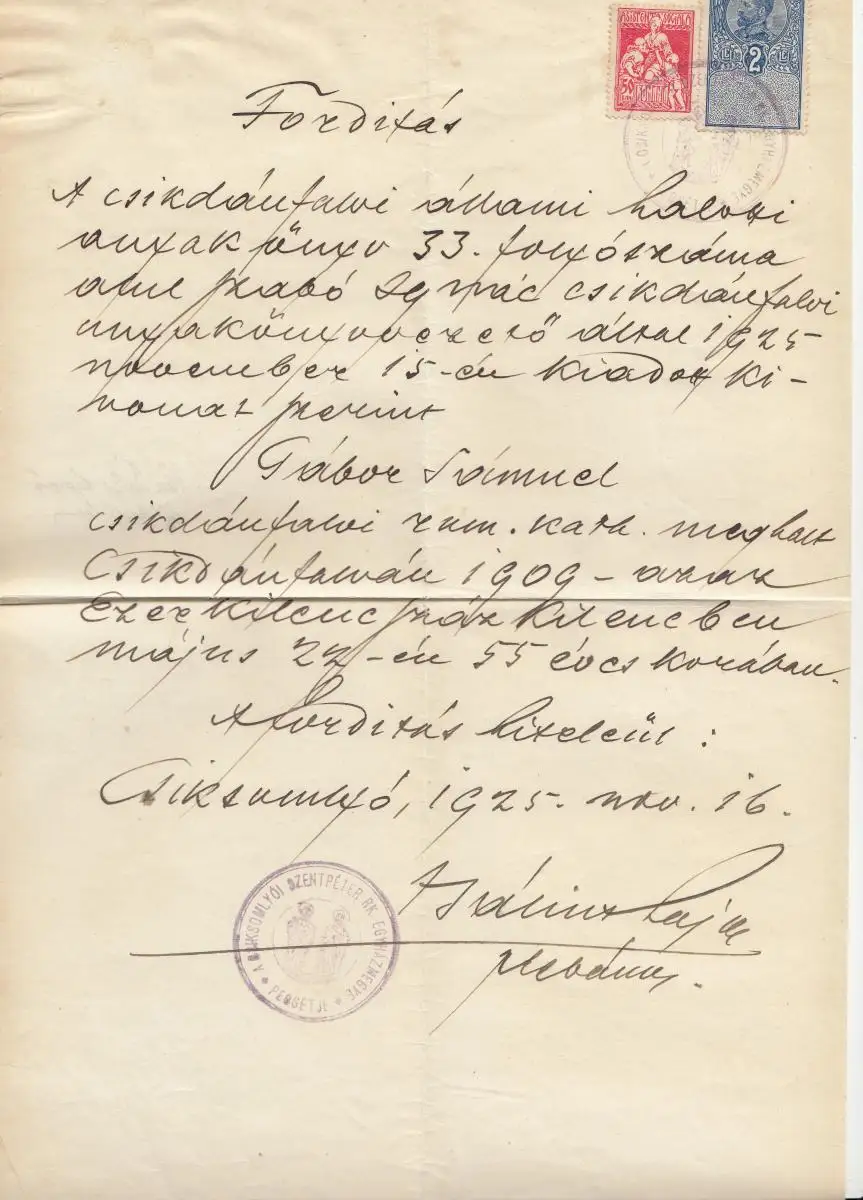 ASISTENȚA SOCIALĂ
50
ROMANIA
LEI 2 LEI
Forditás
A csikdánfalvi állami halotti
anyakönyv 33. folyószáma
alul Szabó Ignác csikdánfalvi
anyakönyvvezető által 1925
november 15-én kiadott ki-
vonat szerint
Gábor Sámuel
csikdánfalvi rom. kath. meghalt
Csikdánfalván 1909 - azaz
Ezerkilencszázkilencben
május 22-én 55 éves korában.
A forditás hiteleül :
Csiksomlyó, 1925. nov. 16.
Bálint Lajos
plebános.
A CSIKSOMLYÓI SZENTPÉTER RK. EGYHÁZMEGYE
PECSÉTJE